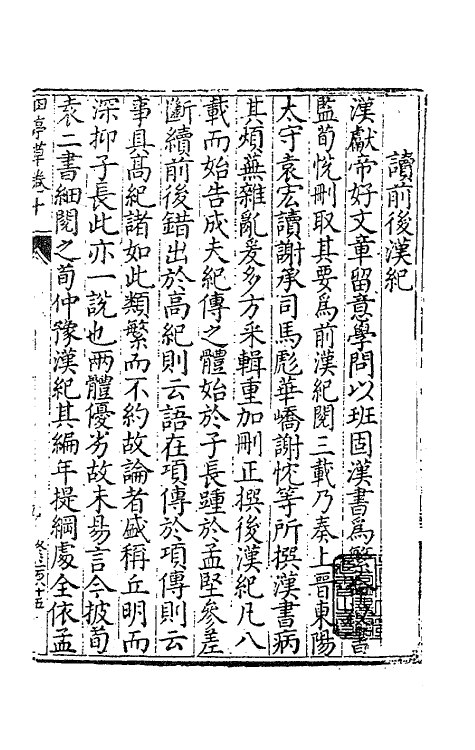 讀前後漢紀
漢獻帝好文章留意學問以班固漢書爲繁 書
監荀悅刪取其要爲前漢紀閱三載乃奏上晉東陽
太守袁宏讀謝承司馬彪華嶠謝忱等所撰漢書病
其煩蕪雜亂爰多方采輯重加刪正撰後漢紀凡八
載而始告成夫紀傳之體始於子長踵於孟堅參差
斷續前後錯出於高紀則云語在項傳於項傳則云
事具高紀諸如此類繁而不約故論者盛稱丘明而
深抑子長此亦一說也兩體優劣故未易言今披荀
袁二書細閱之荀仲豫漢紀其編年提綱處全依孟
田亭草卷十